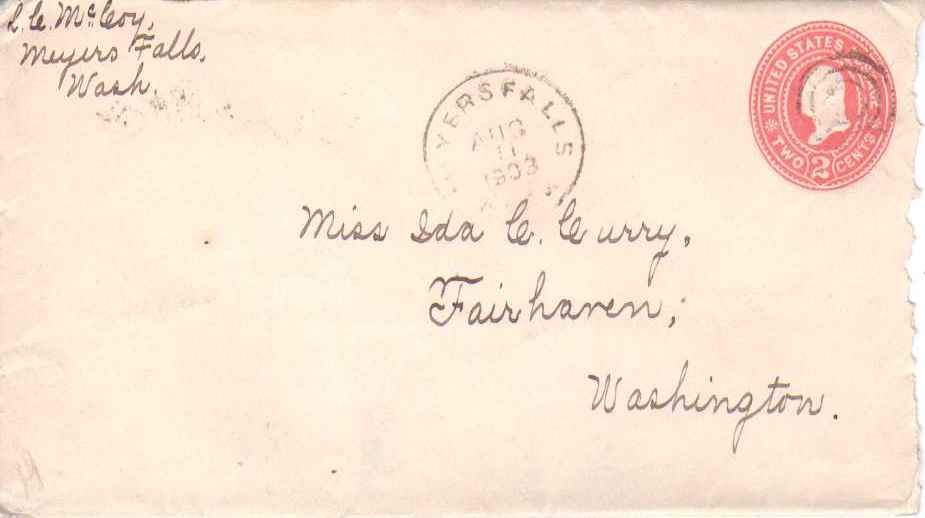 L. C. McCoy,
Meyers Falls,
Wash.
MEYERS FALLS
AUG
11
1903
UNITED STATES
TWO 2 CENTS
Miss Ida C. Curry,
Fairhaven,
Washington.